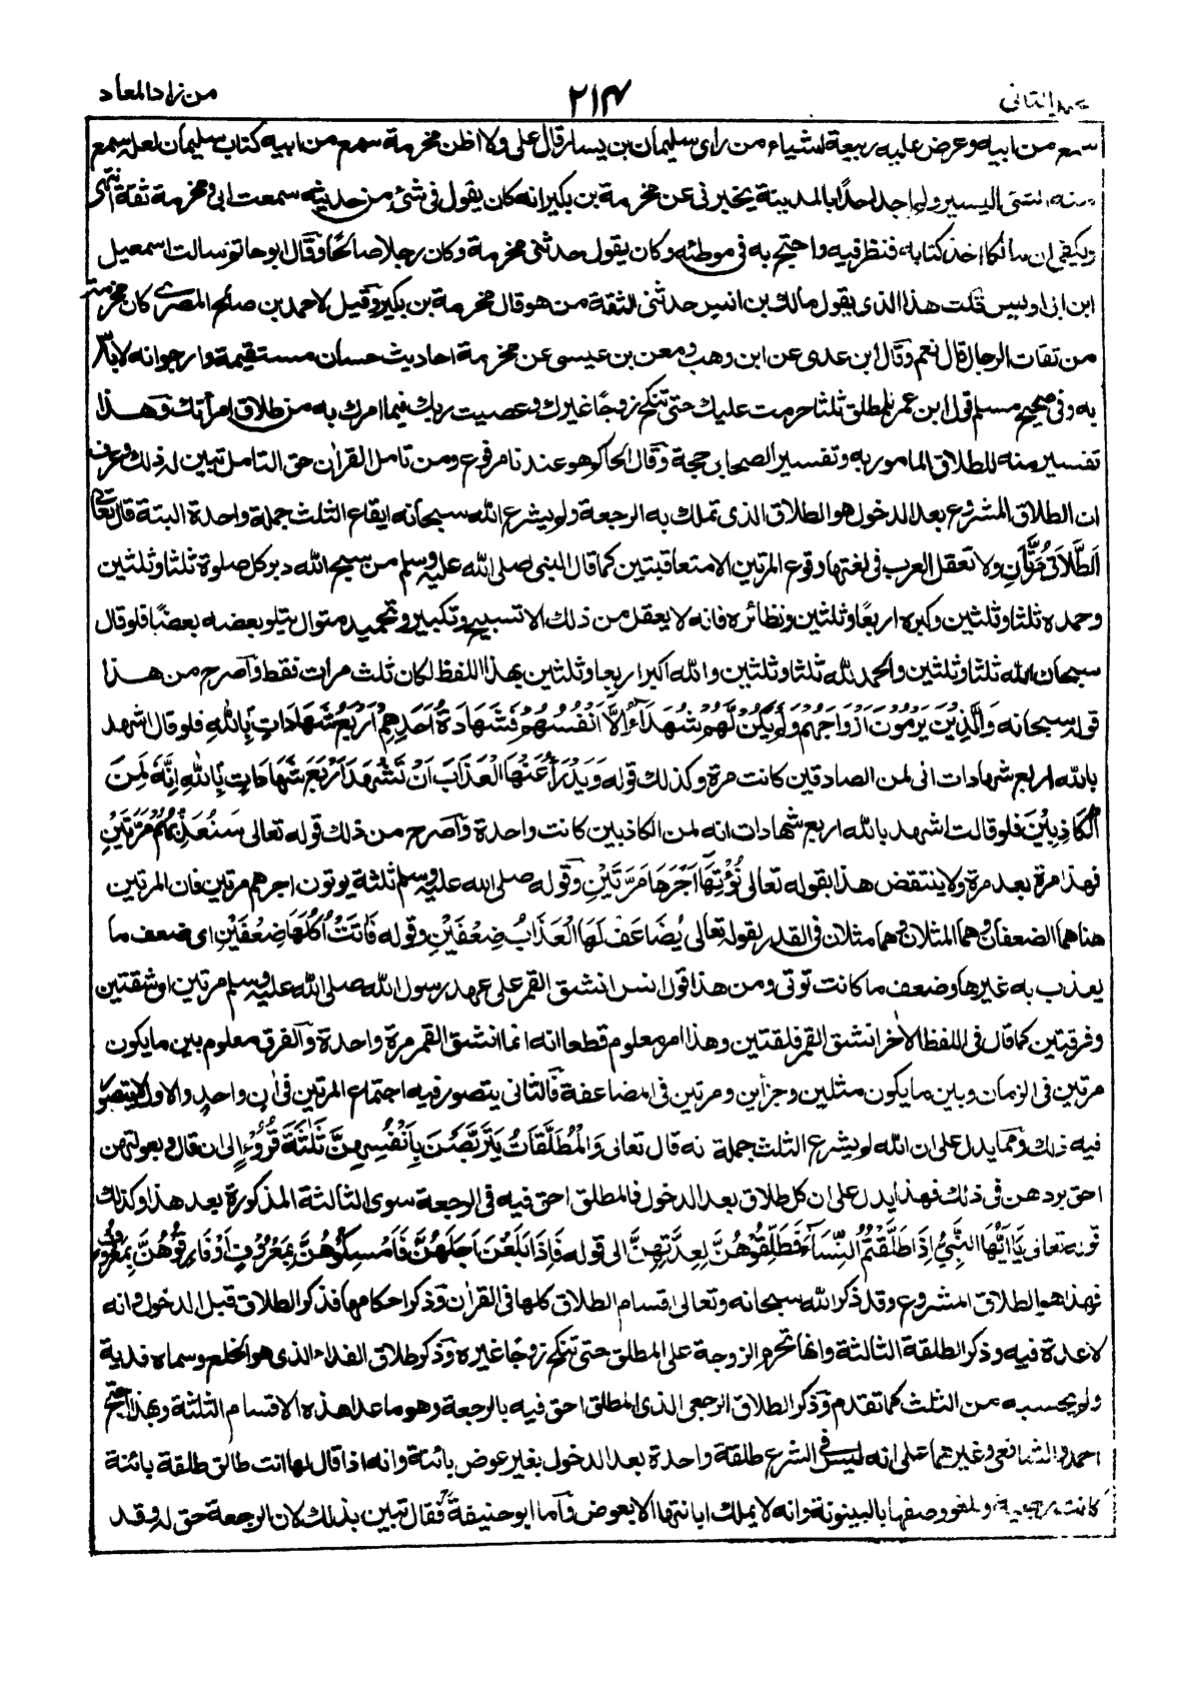 من زاد المعاد
٢١٤
الثاني
سمع من ابيه وعرض عليه ربيعة اشياء من راى سليمان بن يسار قال على ولا اظن مخرمة سمع من ابيه كتاب سليمان لعله سمع
منه الشئ اليسير ولم اجد احدا بالمدينة يخبرنى عن مخرمة بن بكير انه كان يقول فى شئ من حديثه سمعت ابى ومخرمة ثقة انتهى
ويكفى ان مالكا اخذ كتابه فنظر فيه واحتج به فى موطئه وكان يقول حدثنى مخرمة وكان رجلا صالحا وقال ابو حاتم سالت اسمعيل
ابن ابى اويس قلت هذا الذى يقول مالك بن انس حدثنى الثقة من هو قال مخرمة بن بكير وقيل لاحمد بن صالح المصرى كان مخرمة
من ثقات الرجال قال نعم وقال ابن عدى عن ابن وهب ومعن بن عيسى عن مخرمة احاديث حسان مستقيمة وارجو انه لا باس
به وفى صحيح مسلم قول ابن عمر للمطلق ثلثا حرمت عليك حتى تنكح زوجًا غيرك وعصيت ربك فيما امرك به من طلاق امرأتك وهذا
تفسير منه للطلاق المامور به وتفسير الصحابى حجة وقال الحاكم هو عندنا مرفوع ومن تامل القران حق التامل تبين له ذلك وعرف
ان الطلاق المشروع بعد الدخول هو الطلاق الذى تملك به الرجعة ولم يشرع الله سبحانه ايقاع الثلث جملة واحدة البتة قال تعالى
اَلطَّلَاقُ مَرَّتَانِ ولا تعقل العرب فى لغتها وقوع المرتين الا متعاقبتين كما قال النبى صلى الله عليه وسلم من سبح الله دبر كل صلوة ثلثا وثلثين
وحمده ثلثا وثلثين وكبره اربعًا وثلثين ونظائره فانه لا يعقل من ذلك الا تسبيح وتكبير وتحميد متوال يتلو بعضه بعضًا فلو قال
سبحان الله ثلثا وثلثين والحمد لله ثلثا وثلثين والله اكبر اربعا وثلثين بهذا اللفظ لكان ثلث مرات فقط واصرح من هذا
قوله سبحانه وَالَّذِيْنَ يَرْمُوْنَ اَزْوَاجَهُمْ وَلَمْ يَكُنْ لَّهُمْ شُهَدَآءُ اِلَّا اَنْفُسُهُمْ فَشَهَادَةُ اَحَدِهِمْ اَرْبَعُ شَهَادَاتٍ بِاللهِ فلو قال اشهد
بالله اربع شهادات انى لمن الصادقين كانت مرة وكذلك قوله وَيَدْرَأُ عَنْهَا الْعَذَابَ اَنْ تَشْهَدَ اَرْبَعَ شَهَادَاتٍ بِاللهِ اِنَّهُ لَمِنَ
الْكَاذِبِيْنَ فلو قالت اشهد بالله اربع شهادات انه لمن الكاذبين كانت واحدة واصرح من ذلك قوله تعالى سَنُعَذِّبُهُمْ مَرَّتَيْنِ
فهذا مرة بعد مرة ولا ينتقض هذا بقوله تعالى نُؤْتِهَا اَجْرَهَا مَرَّتَيْنِ وقوله صلى الله عليه وسلم ثلثة يوتون اجرهم مرتين فان المرتين
هنا هما الضعفان وهما المثلان وهما مثلان فى القدر بقوله تعالى يُضَاعَفْ لَهَا الْعَذَابُ ضِعْفَيْنِ وقوله فَاٰتَتْ اُكُلَهَا ضِعْفَيْنِ اى ضعف ما
يعذب به غيرها وضعف ما كانت توتى ومن هذا قول انس انشق القمر على عهد رسول الله صلى الله عليه وسلم مرتين او شقتين
وفرقتين كما قال فى اللفظ الاخر انشق القمر فلقتين وهذا امر معلوم قطعا انه انما انشق القمر مرة واحدة والفرق معلوم بين ما يكون
مرتين فى الزمان وبين ما يكون مثلين وجزأين ومرتين فى المضاعفة فالثانى يتصور فيه اجتماع المرتين فى اٰن واحد والاول لا يتصور
فيه ذلك ومما يدل على ان الله لم يشرع الثلث جملة نه قال تعالى وَالْمُطَلَّقَاتُ يَتَرَبَّصْنَ بِاَنْفُسِهِنَّ ثَلٰثَةَ قُرُوْءٍ الى ان قال وبعولتهن
احق بردهن فى ذلك فهذا يدل على ان كل طلاق بعد الدخول فالمطلق احق فيه فى الرجعة سوى الثالثة المذكورة بعد هذا وكذلك
قوله تعالى يَا اَيُّهَا النَّبِيُّ اِذَا طَلَّقْتُمُ النِّسَآءَ فَطَلِّقُوْهُنَّ لِعِدَّتِهِنَّ الى قوله فَاِذَا بَلَغْنَ اَجَلَهُنَّ فَاَمْسِكُوْهُنَّ بِمَعْرُوْفٍ اَوْ فَارِقُوْهُنَّ بِمَعْرُوْفٍ
فهذا هو الطلاق المشروع وقد ذكر الله سبحانه وتعالى اقسام الطلاق كلها فى القران وذكر احكامها فذكر الطلاق قبل الدخول وانه
لا عدة فيه وذكر الطلقة الثالثة وانها تحرم الزوجة على المطلق حتى تنكح زوجًا غيره وذكر طلاق الفداء الذى هو الخلع وسماه فدية
ولم يحسبه من الثلث كما تقدم وذكر الطلاق الرجعى الذى المطلق احق فيه بالرجعة وهو ما عدا هذه الاقسام الثلثة وبهذا احتج
احمد والشافعى وغيرهما على انه ليس فى الشرع طلقة واحدة بعد الدخول بغير عوض بائنة وانه اذا قال لها انت طالق طلقة بائنة
كانت رجعية ويلغو وصفها بالبينونة وانه لا يملك ابانتها الا بعوض واما ابو حنيفة فقال تبين بذلك لان الرجعة حق له وقد